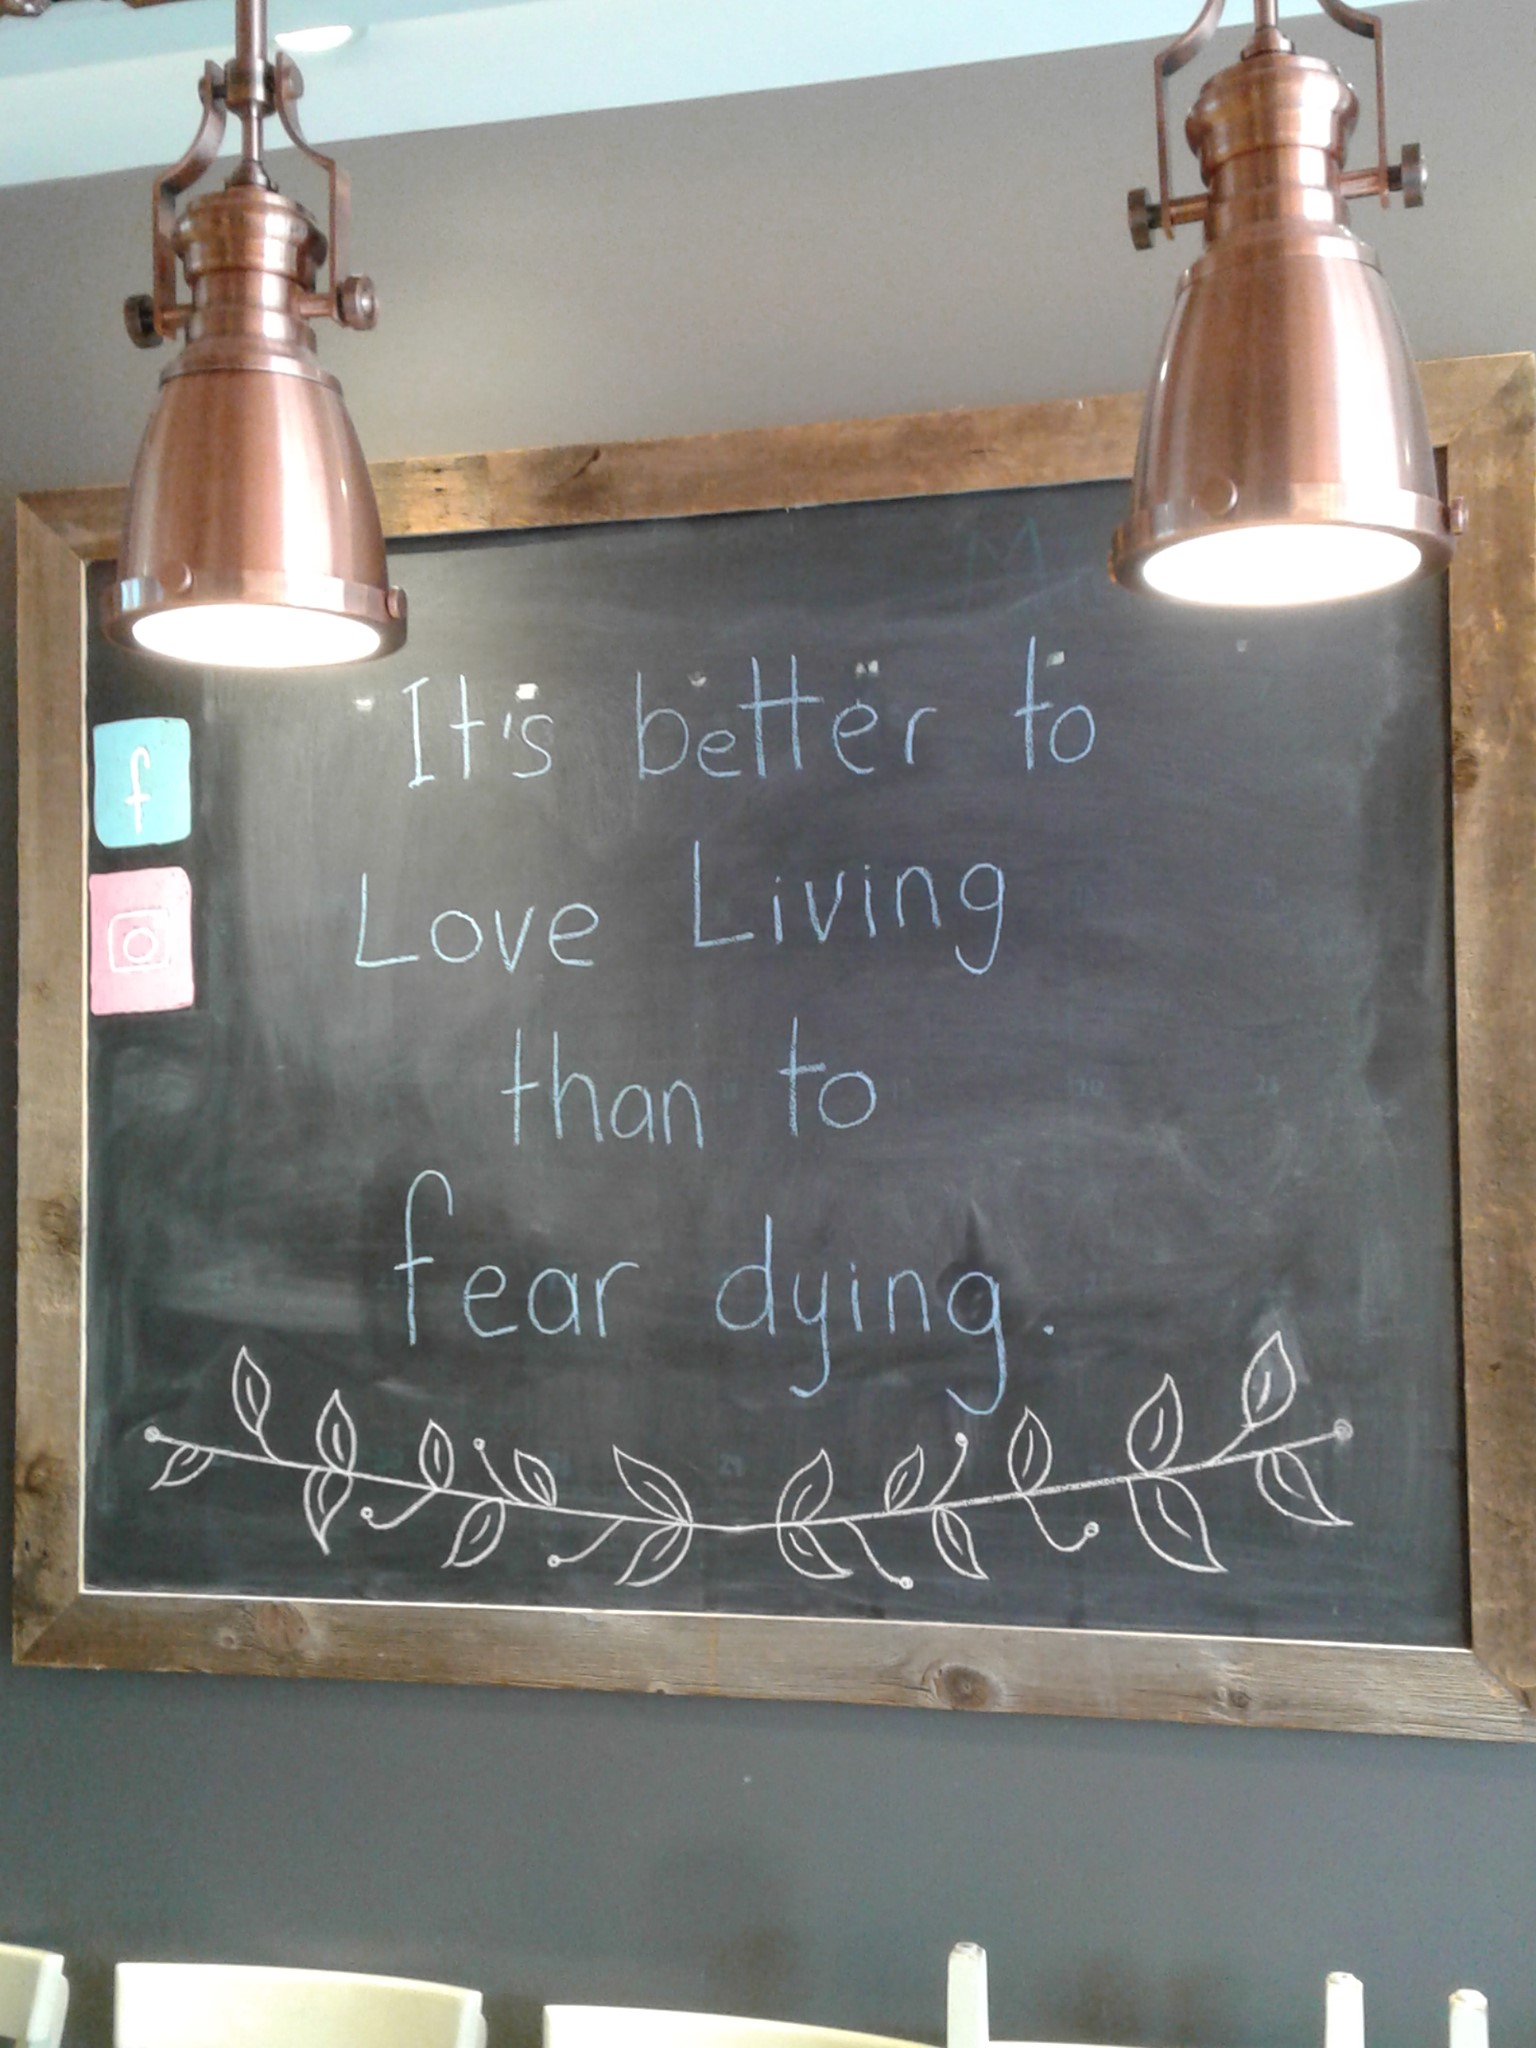 It's better to
Love Living
than to
fear dying.
f